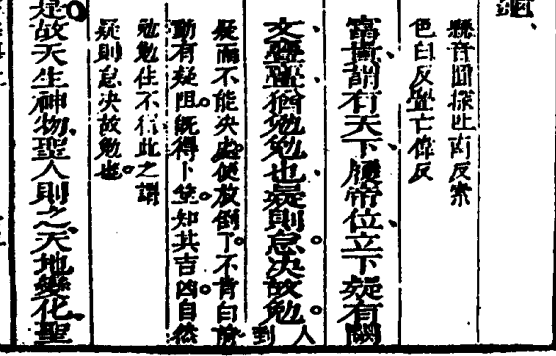 龜、
縣音圓探吐南反索
色白反亹亡偉反
富貴謂有天下、履帝位、立下疑有闕
文、亹亹猶勉勉也、疑則怠。決故勉。人到
疑而不能決處便放倒了。不肯向前
動有疑阻。既得卜筮知其吉凶。自然
勉勉住不行此之謂
疑則怠決故勉也。
是故天生神物、聖人則之、天地變化、聖